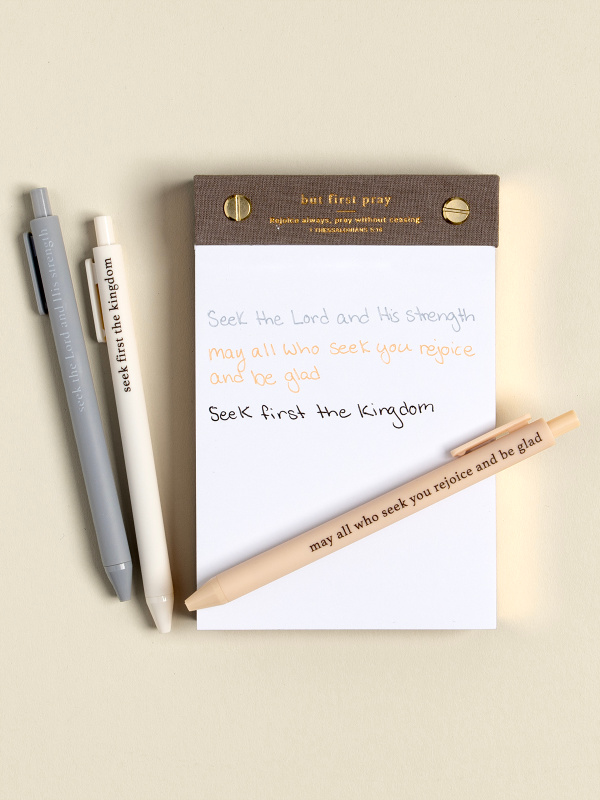 but first pray
Rejoice always, pray without ceasing.
1 THESSALONIANS 5:16
Seek the Lord and His strength
may all who seek you rejoice
and be glad
Seek first the Kingdom
seek the Lord and His strength
seek first the kingdom
may all who seek you rejoice and be glad